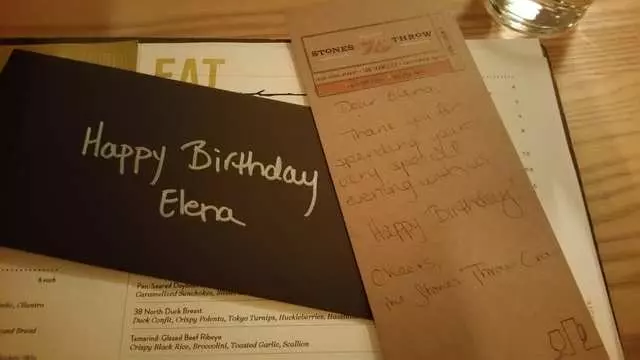 EAT
STONES THROW
Happy Birthday
Elena
Dear Elena,
Thank you for
spending your
very special
evening with us.
Happy Birthday!
Cheers,
The Stones Throw
6 each
Cilantro
Bread
Pan Seared
Caramelized Sunchokes,
38 North Duck Breast
Duck Confit, Crispy Polenta, Tokyo Turnips, Huckleberries,
Tamarind Glazed Beef Ribeye
Crispy Black Rice, Broccolini, Toasted Garlic, Scallion